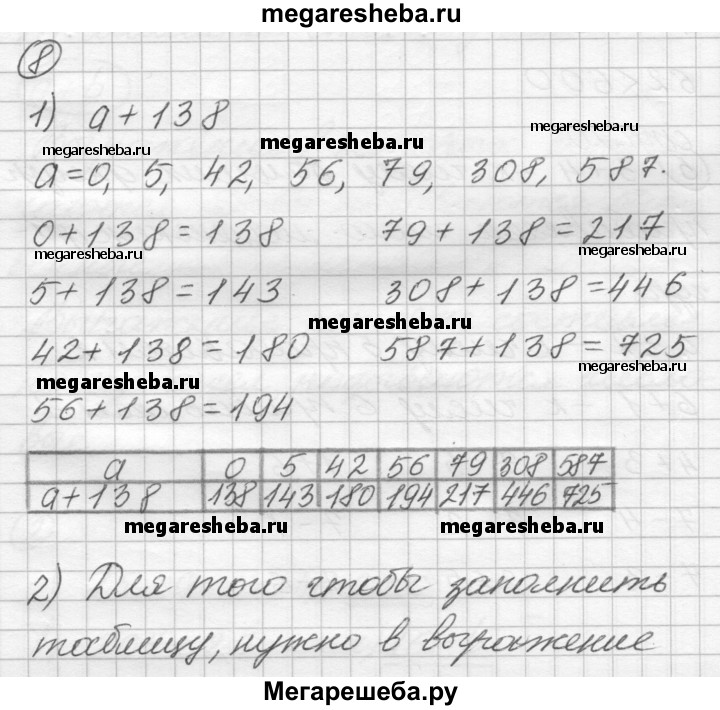 megaresheba.ru
8
1) a + 138
megaresheba.ru
megaresheba.ru
megaresheba.ru
a=0, 5, 42, 56, 79, 308, 587.
0+138=138 79+138=217
megaresheba.ru
megaresheba.ru
5+138=143 308+138=446
megaresheba.ru
42+138=180 587+138=725
megaresheba.ru
megaresheba.ru
56+138=194
a 0 5 42 56 79 308 587
a+138 138 143 180 194 217 446 725
megaresheba.ru
megaresheba.ru
2) Для того чтобы заполнить
таблицу, нужно в выражение
Мегарешеба.ру